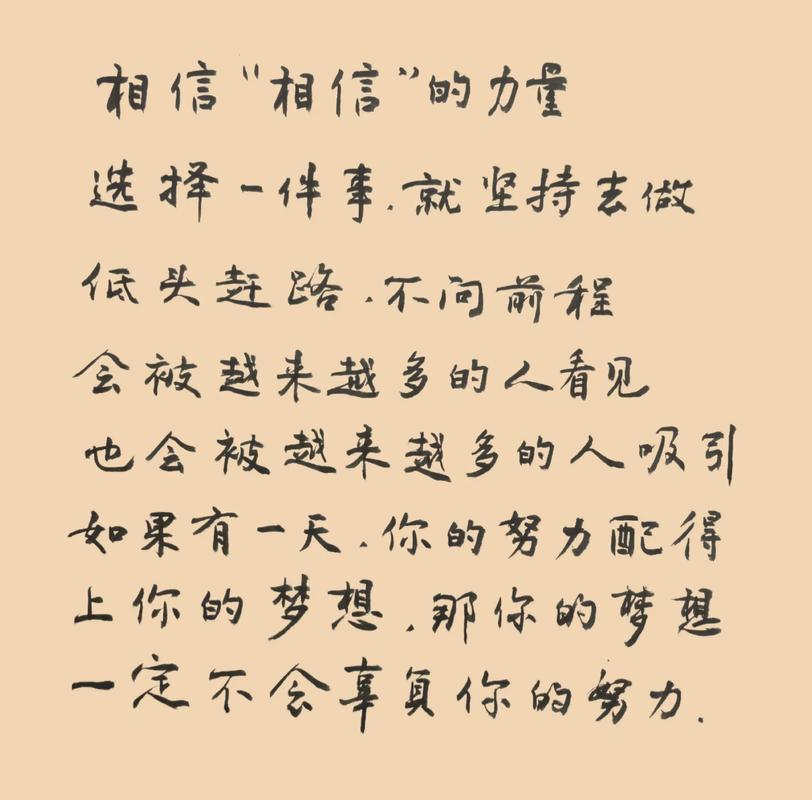 相信“相信”的力量
选择一件事.就坚持去做
低头赶路.不问前程
会被越来越多的人看见
也会被越来越多的人吸引
如果有一天.你的努力配得
上你的梦想,那你的梦想
一定不会辜负你的努力.